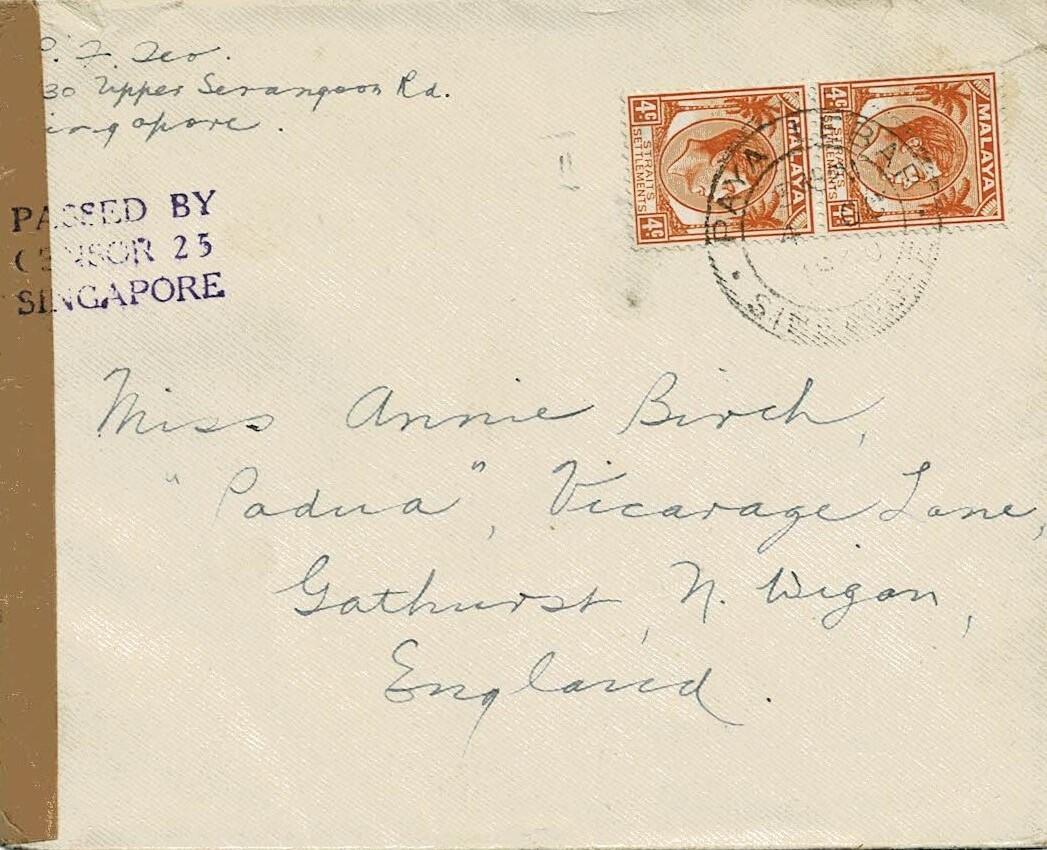 . F. Teo.
30 Upper Serangoon Rd.
ingapore.
PASSED BY
CENSOR 25
SINGAPORE
4c 4c STRAITS SETTLEMENTS MALAYA
4c STRAITS SETTLEMENTS MALAYA
PAYA LEBAR
SINGAPORE
Miss Annie Birch,
"Padua", Vicarage Lane,
Gathurst, N. Wigan,
England.